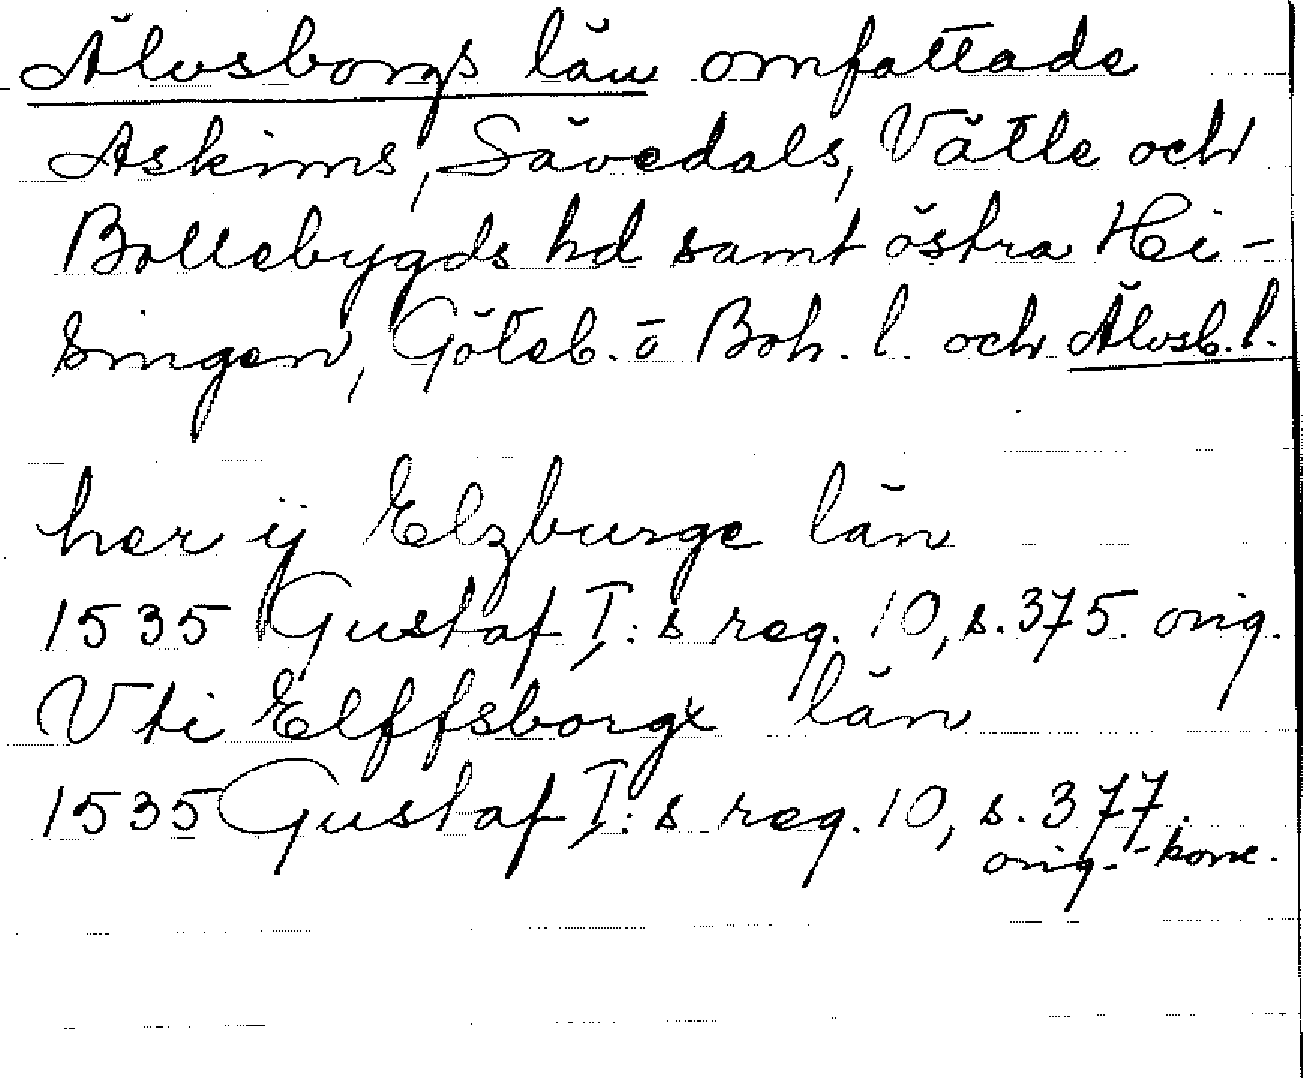 Älvsborgs län omfattade
Askims, Sävedals, Vättle och
Bollebygds hd samt östra Hi-
singen, Göteb. o Boh. l. och Älvsb. l.
her ij Elzburge län
1535 Gustaf I:s reg. 10, s. 375. orig.
Vti Elffsborgx län
1535 Gustaf I:s reg. 10, s. 377.
orig.-konc.